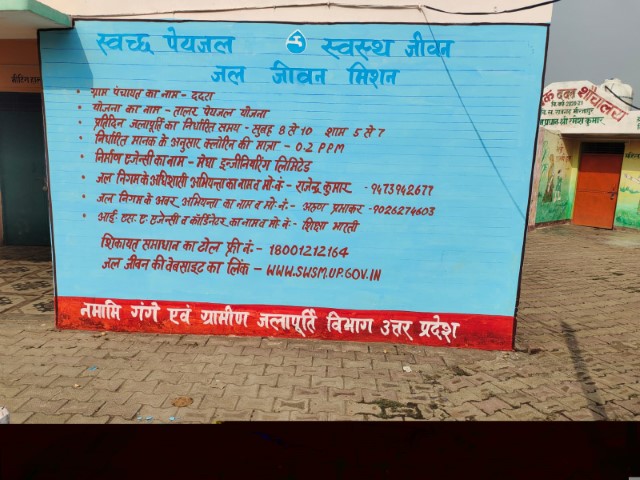 स्वच्छ पेयजल स्वस्थ जीवन
जल जीवन मिशन
ग्राम पंचायत का नाम - ददरा
योजना का नाम - तालर पेयजल योजना
प्रतिदिन जलापूर्ति का निर्धारित समय - सुबह 8 से 10 शाम 5 से 7
निर्धारित मानक के अनुसार क्लोरिन की मात्रा - 0.2 PPM
निर्माण एजेन्सी का नाम - मेघा इन्जीनियरिंग लिमिटेड
जल निगम के अधिशासी अभियन्ता का नाम व मो. नं. - राजेन्द्र कुमार - 9473942677
जल निगम के अवर अभियन्ता का नाम व मो. नं. - अरुण प्रभाकर - 9026274603
आई. एस. ए. एजेन्सी व कोर्डिनेटर का नाम व मो. नं. - शिक्षा भारती
शिकायत समाधान का टोल फ्री नं. - 18001212164
जल जीवन की वेबसाइट का लिंक - WWW.SWSM.UP.GOV.IN
नमामि गंगे एवं ग्रामीण जलापूर्ति विभाग उत्तर प्रदेश
ददरा शौचालय